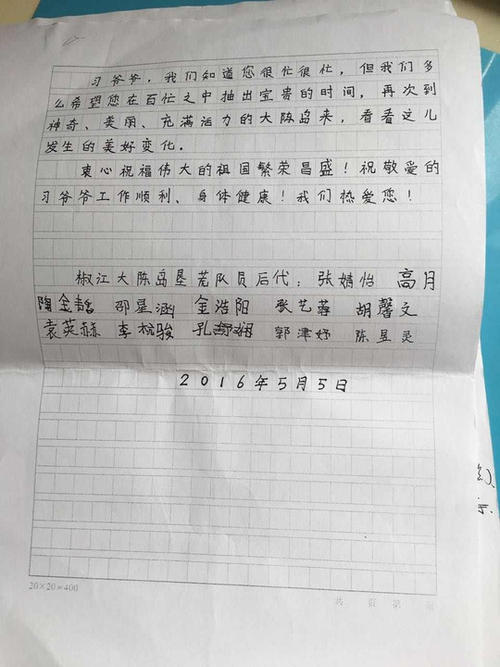 习爷爷，我们知道您很忙很忙，但我们多
么希望您在百忙之中抽出宝贵的时间，再次到
神奇、美丽、充满活力的大陈岛来，看看这儿
发生的美好变化。
衷心祝福伟大的祖国繁荣昌盛！祝敬爱的
习爷爷工作顺利、身体健康！我们热爱您！
椒江大陈岛垦荒队员后代：张婧怡 高月
陶金 邵星涵 金浩阳 张艺蓉 胡馨文
袁英赫 李松骏 孔 郭津妤 陈昱灵
2016年5月5日
20×20=400
共 页 第 页